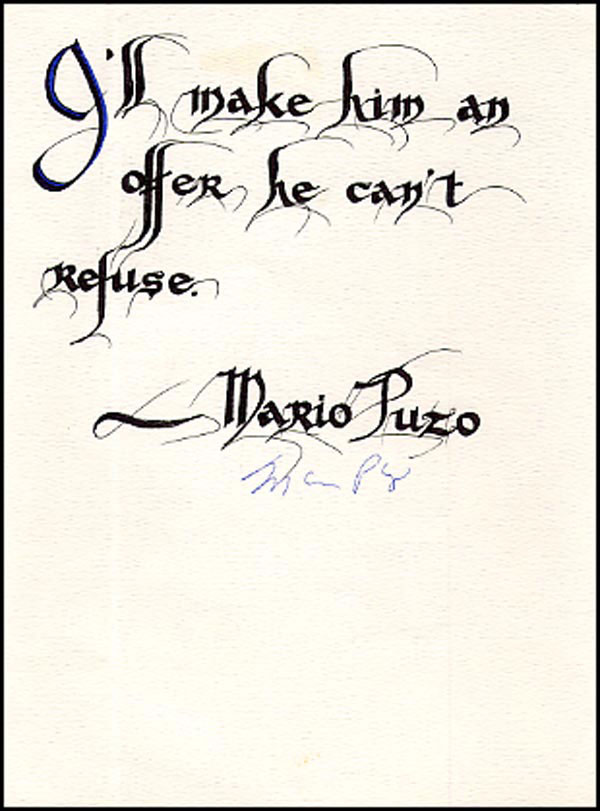 I'll make him an
offer he can't
refuse.
— Mario Puzo